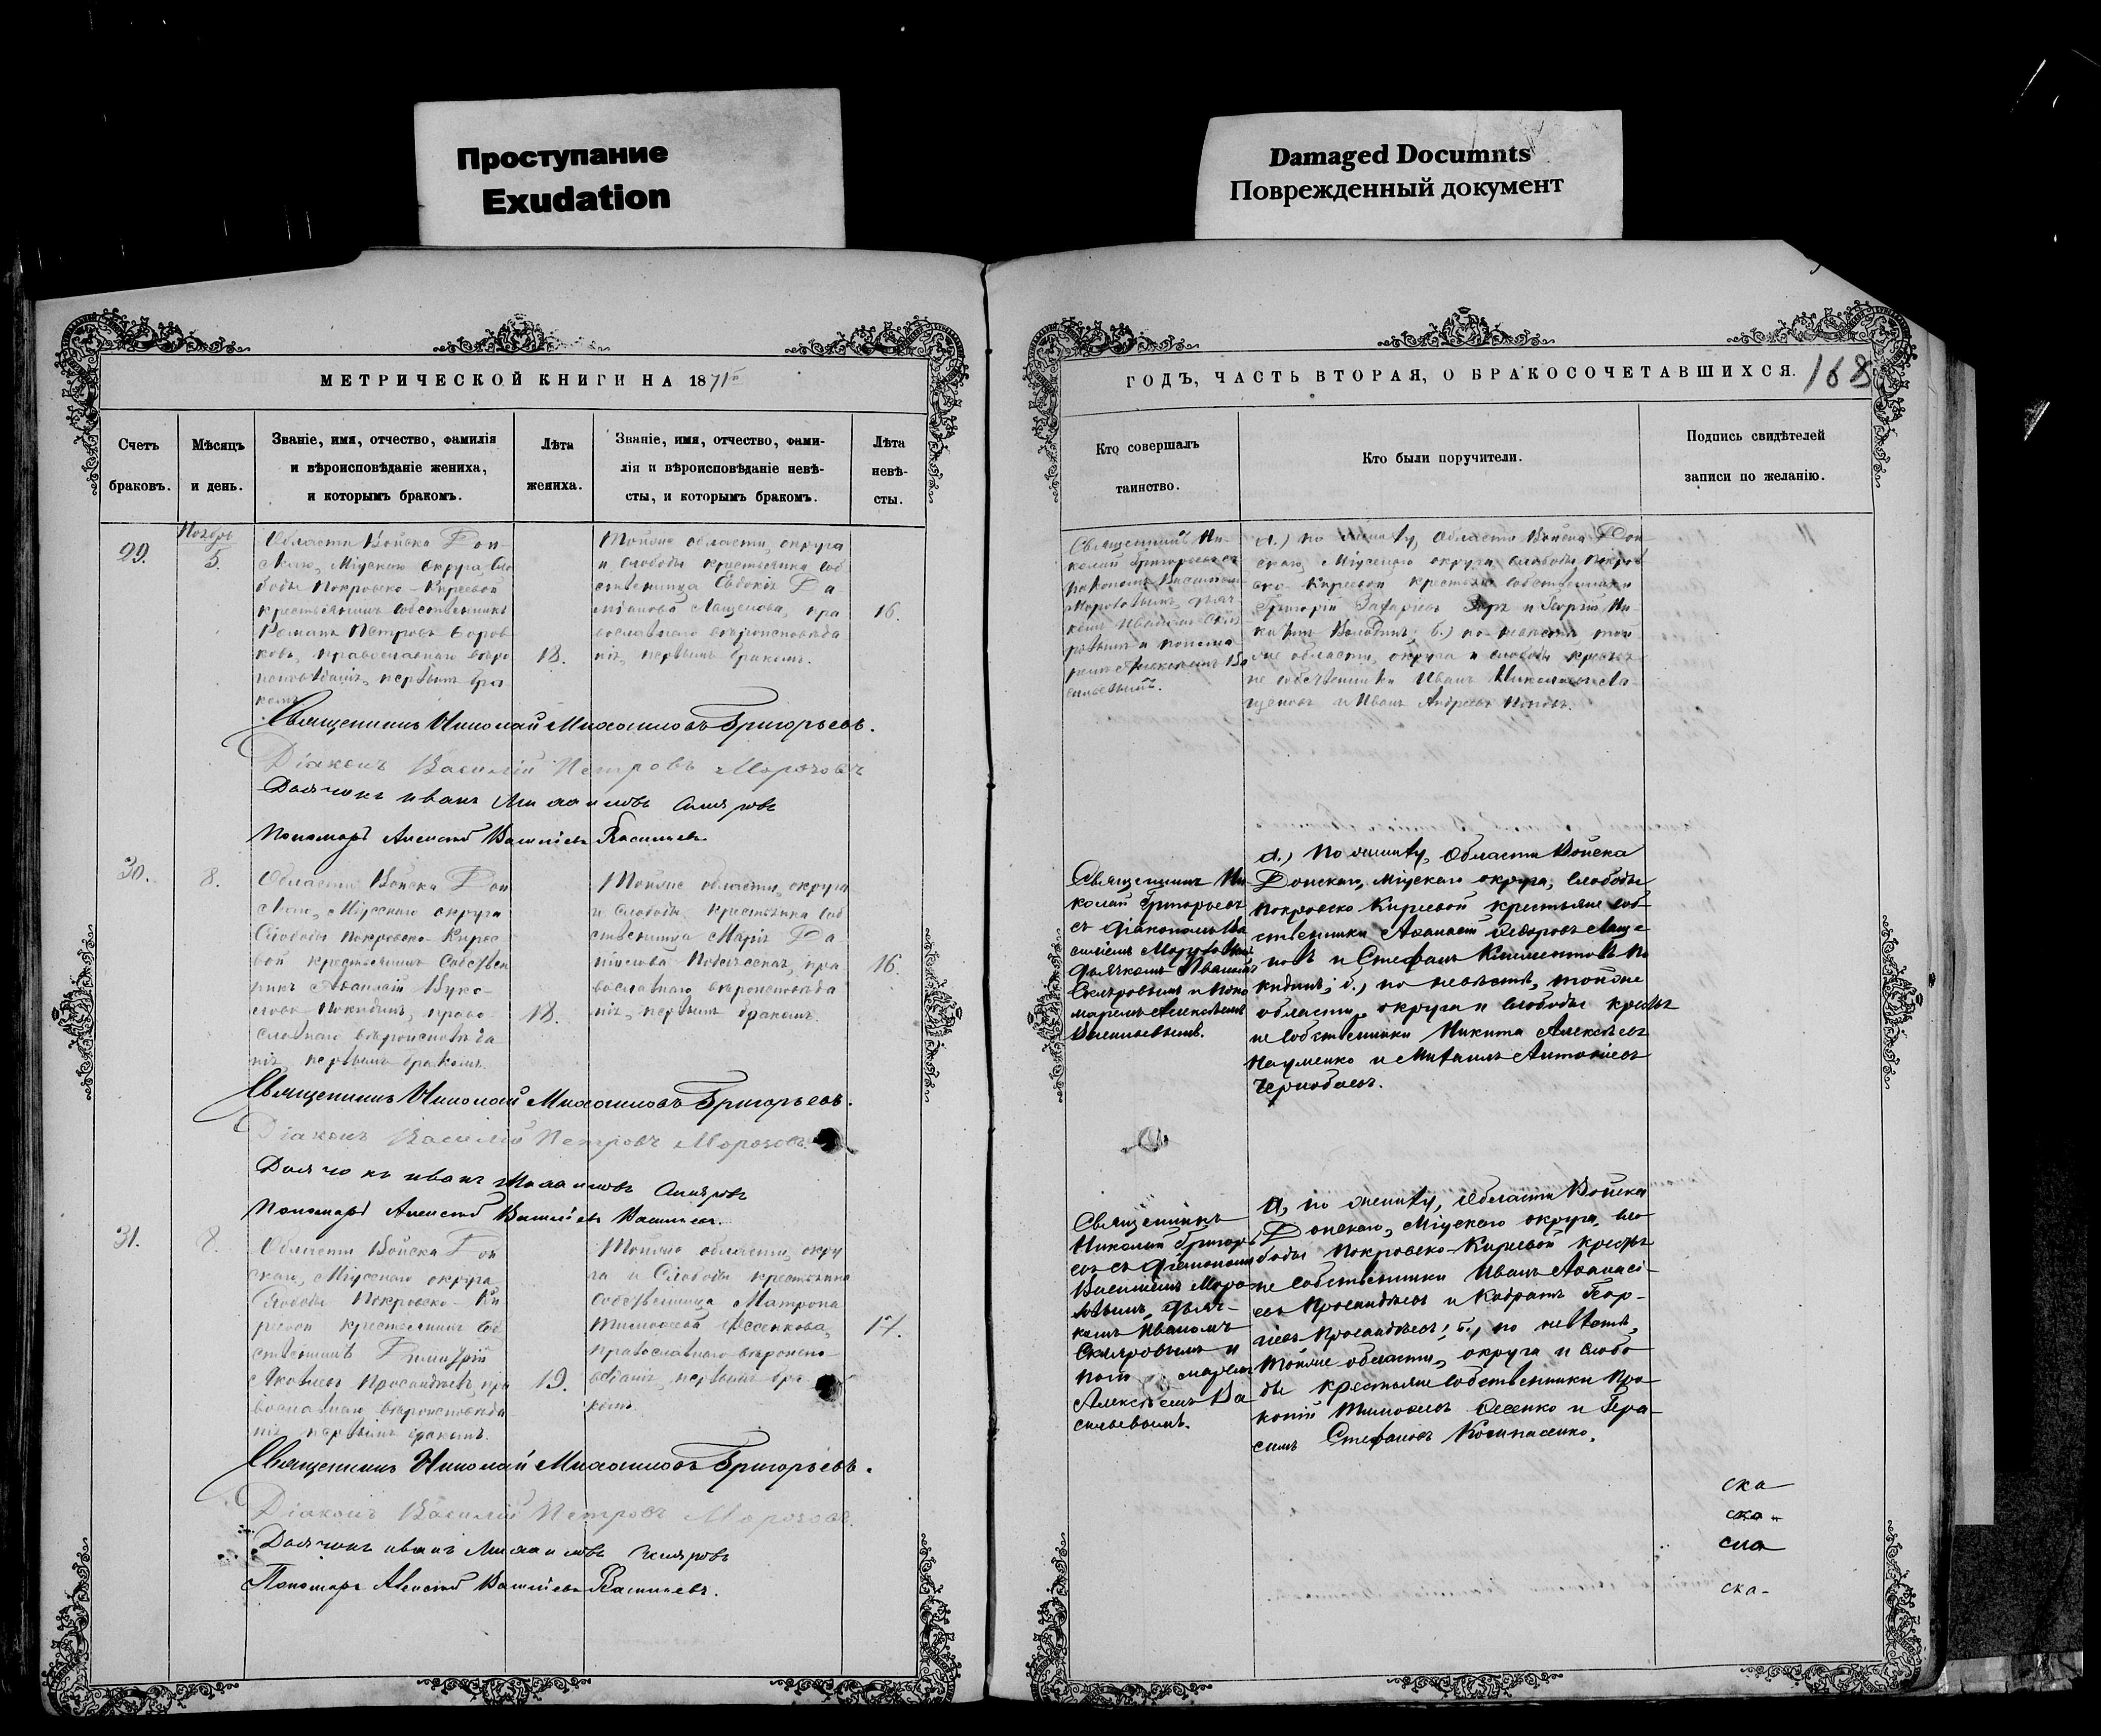 Проступание
Exudation
Damaged Documnts
Поврежденный документ
МЕТРИЧЕСКОЙ КНИГИ НА 1871
ГОДЪ, ЧАСТЬ ВТОРАЯ, О БРАКОСОЧЕТАВШИХСЯ.
168
Счетъ
браковъ.
Мѣсяцъ
и день.
Званіе, имя, отчество, фамилія
и вѣроисповѣданіе жениха,
и которымъ бракомъ.
Лѣта
жениха.
Званіе, имя, отчество, фами-
лія и вѣроисповѣданіе невѣ-
сты, и которымъ бракомъ.
Лѣта
невѣ-
сты.
Кто совершалъ
таинство.
Кто были поручители.
Подпись свидѣтелей
записи по желанію.
29.
Ноябрь
5.
Области Войска Дон-
скаго, Міускаго округа, сло
боды Покровско-Кирѣевой
крестьянинъ собственникъ
Романъ Петровъ Боров
ковъ, православнаго вѣро
исповѣданія, первымъ бра
комъ.
18.
Тойже области, округа
и слободы крестьянка соб
ственница Евдокія Да
міанова Лащенова, пра
вославнаго вѣроисповѣда
нія, первымъ бракомъ.
16.
Священникъ Ни-
колай Григорьевъ съ
діакономъ Василіем
Морозовымъ, дьяч
комъ Иваномъ Скля
ровымъ и понома
ремъ Алексѣемъ Ва
сильевымъ.
а.) по жениху, Области Войска Дон
скаго, Міускаго округа, слободы Покров
ско-Кирѣевой крестьяне собственники
Григорій Захаріевъ и Георгій Ни-
китинъ; б.) по невѣстѣ той
же области, округа и слободы крестья
не собственники Иванъ Николаевъ Ла-
щеновъ и Иванъ Андреевъ
Священникъ Николай Михаиловъ Григорьевъ.
Діаконъ Василій Петровъ Морозовъ
Дьячокъ Иванъ Михаиловъ Скляровъ
Пономарь Алексѣй Васильевъ Васильевъ
30.
8.
Области Войска Дон
скаго, Міусскаго округа
Слободы Покровско-Кирѣе
вой крестьянинъ Собствен
никъ Аѳанасій Вуко-
лова Покидинъ, право-
славнаго вѣроисповѣда
нія, первымъ бракомъ.
18.
Тойже области, округа
и Слободы крестьянка соб
ственница Марія Да-
нілова, пра
вославнаго вѣроисповѣда
нія, первымъ бракомъ.
16.
Священникъ Ни-
колай Григорьевъ
съ діакономъ Ва
силіемъ Морозовымъ
дьячкомъ Иваномъ
Скляровымъ и Поно
маремъ Алексѣемъ
Васильевымъ.
а.) по жениху, Области Войска
Донскаго, Міускаго округа, Слободы
Покровско Кирѣевой крестьяне соб-
ственники Аѳанасій Ѳедоровъ Лаще-
новъ и Стефанъ Климентовъ По
кидинъ; б.) по невѣстѣ, тойже
области, округа и слободы крестья
не собственники Никита Алексѣевъ
Науменко и Михаилъ Антоніевъ
Чернобаевъ.
Священникъ Николай Михаиловъ Григорьевъ.
Діаконъ Василій Петровъ Морозовъ
Дьячокъ Иванъ Михаиловъ Скляровъ
Пономарь Алексѣй Васильевъ Васильевъ.
31.
8.
Области Войска Дон
скаго, Міусскаго округа,
Слободы Покровско-Ки
рѣевой крестьянинъ Соб
ственникъ Димитрій
Яковлевъ Просандѣевъ, пра
вославнаго вѣроисповѣда
нія первымъ бракомъ.
19.
Тойже области, окру
га и Слободы крестьянка
Собственница Матрона
Тимоѳеева Ѳесенкова,
православнаго вѣроиспо-
вѣданія, первымъ бра
комъ.
17.
Священникъ
Николай Григорь
евъ съ діакономъ
Василіемъ Моро
зовымъ, дьяч-
комъ Иваномъ
Скляровымъ и
поно маремъ
Алексѣемъ Ва
сильевымъ.
а, по жениху, Области Войска
Донскаго, Міускаго округа, сло
боды Покровско-Кирѣевой крестья
не собственники Иванъ Аѳанасі-
евъ Просандѣевъ и Кодратъ Геор-
гіевъ Просандѣевъ; б., по невѣстѣ,
тойже области, округа и слобо
ды крестьяне собственники Про-
копій Тимоѳеевъ Ѳесенко и Гера-
симъ Стефановъ Компасенко.
Священникъ Николай Михаиловъ Григорьевъ.
Діаконъ Василій Петровъ Морозовъ.
Дьячокъ Иванъ Михаиловъ Скляровъ
Пономарь Алексѣй Васильевъ Васильевъ.
ска
ска-
ска
ска-